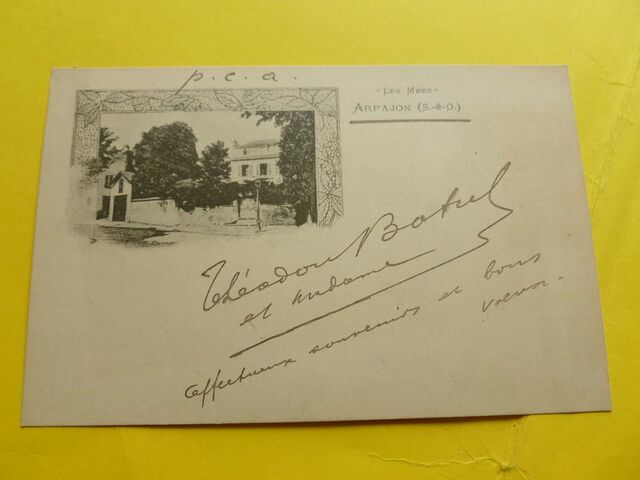 p. c. a.
"LES MÉES"
ARPAJON (S.-&-O.)
Théodore Botrel
et madame
affectueux souvenirs et bons
voeux.